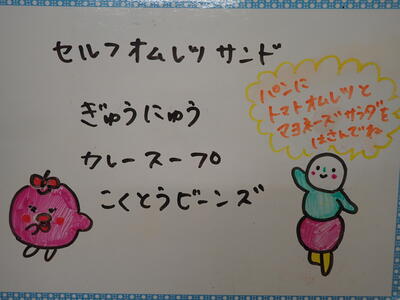 セルフオムレツサンド
ぎゅうにゅう
カレースープ
こくとうビーンズ
パンに
トマトオムレツと
マヨネーズサラダを
はさんでね